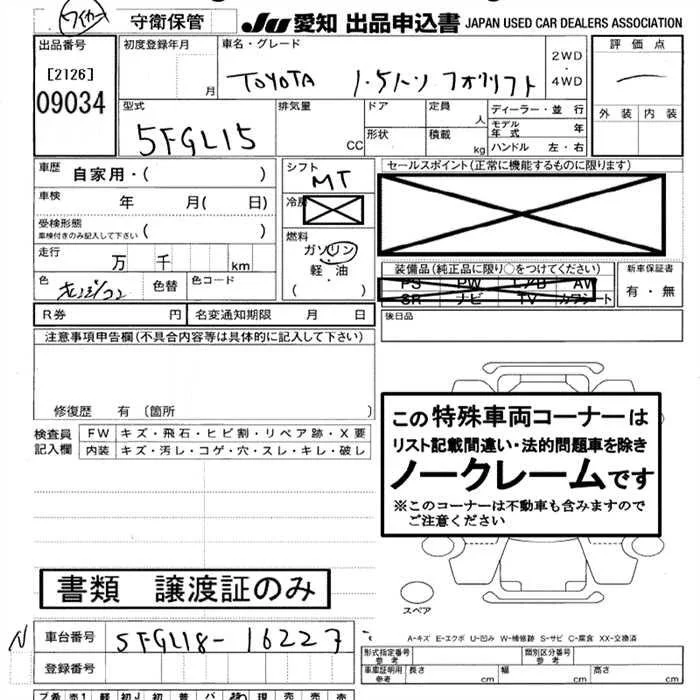 ワイカー 守衛保管 JU 愛知 出品申込書 JAPAN USED CAR DEALERS ASSOCIATION
出品番号 初度登録年月 車名・グレード 評価点
[2126] 月 TOYOTA 1.5トン フォクリフト 2WD ・ 4WD
09034 外装 内装
型式 排気量 ドア 定員 ディーラー・並行
5FGL15 CC 人 モデル年式 年
形状 積載 kg ハンドル 左・右
車歴 自家用・( ) シフト MT セールスポイント(正常に機能するものに限ります)
車検 年 月( 日) 冷房
受検形態 ( )
車検付きのみ記入して下さい
燃料
ガソリン
走行 万 千 km 軽・油
・
( )
色 色替 色コード
装備品(純正品に限り○をつけてください) 新車保証書
PS PW AW
SR ナビ TV カワシート 有・無
R券 円 名変通知期限 月 日 後日品
注意事項申告欄(不具合内容等は具体的に記入して下さい)
修復歴 有 〔箇所 〕
検査員記入欄 FW キズ・飛石・ヒビ割・リペア跡・X要
内装 キズ・汚レ・コゲ・穴・スレ・キレ・破レ
この特殊車両コーナーは
リスト記載間違い・法的問題車を除き
ノークレームです
※このコーナーは不動車も含みますので
ご注意ください
書類 譲渡証のみ
スペア
N 車台番号 5FGL18-16227
A-キズ E-エクボ U-凹み W-補修跡 S-サビ C-腐食 XX-交換済
登録番号
形式指定番号 参考 類別区分番号 参考
車庫証明用 参考 長さ cm 幅 cm 高さ cm